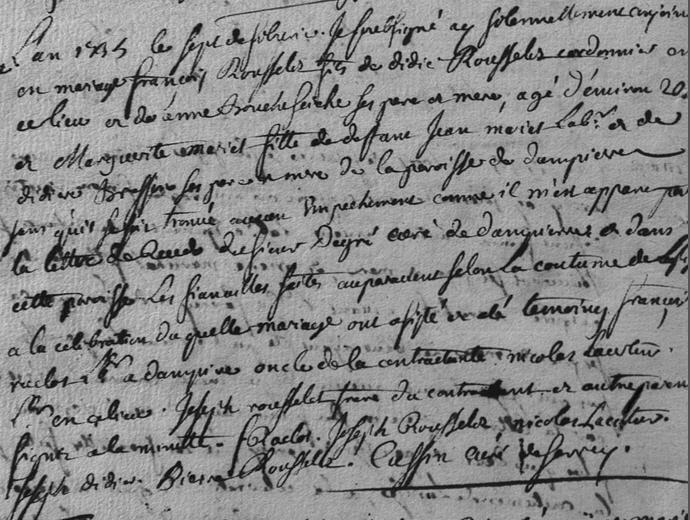 L'an 1735 le sept de febvrier. Je soubsigné ay solennellement conjoin
en mariage françois Rousselet fils de didie Rousselet cordonnier en
ce lieu et de anne ses pere et mere, agé d'environ 20
et Marguerite mariet fille de deffunt Jean mariet Lab.r et de
didiere ses pere et mere de la paroisse de dampierre
sans qu'il se soit trouvé aucun Empechement comme il m'est apparu par
la lettre de du sieur Degré curé de dampierre et dans
cette paroisse Les fiançailles faites auparavant selon La coutume de
a la célébration duquelle mariage ont assisté et été temoins françois
raclot a dampierre oncle de la contractante. nicolas Lacotur
en ce lieu. Joseph rousselet frere du contractant et autre paren
signez a la minutte. f Raclot. Joseph Rousselet nicolas Lacotur.
Joseph didier. Pierre Rousselet. Cassin curé de Serrey.